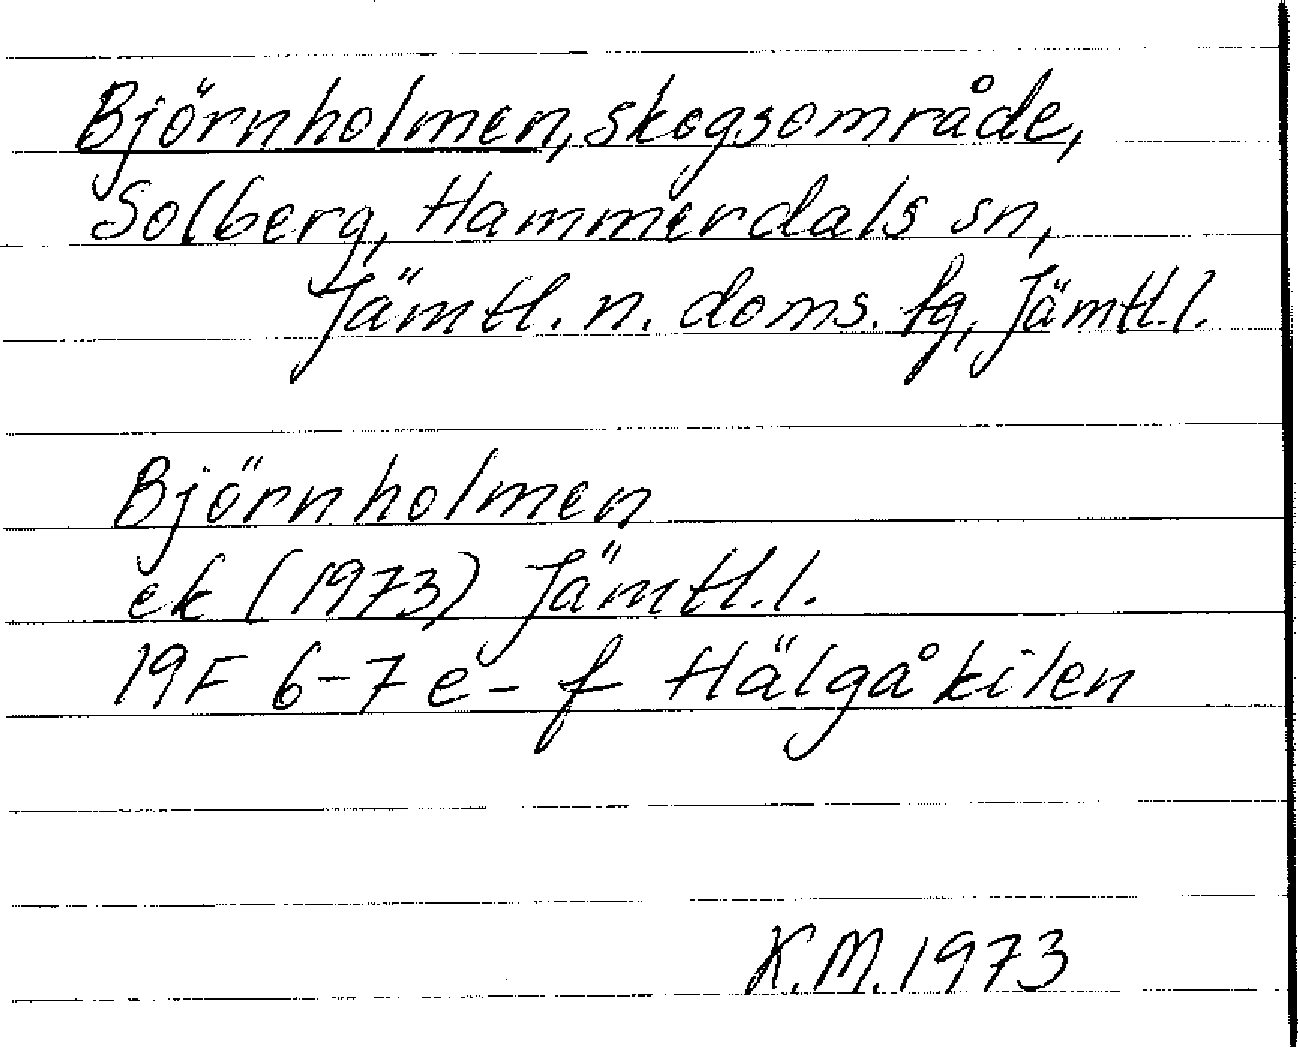 Björnholmen, skogsområde,
Solberg, Hammerdals sn,
Jämtl. n. doms. fg, Jämtl. l.
Björnholmen
ek (1973) Jämtl. l.
19F 6-7 e-f Hälgåkilen
K.M. 1973